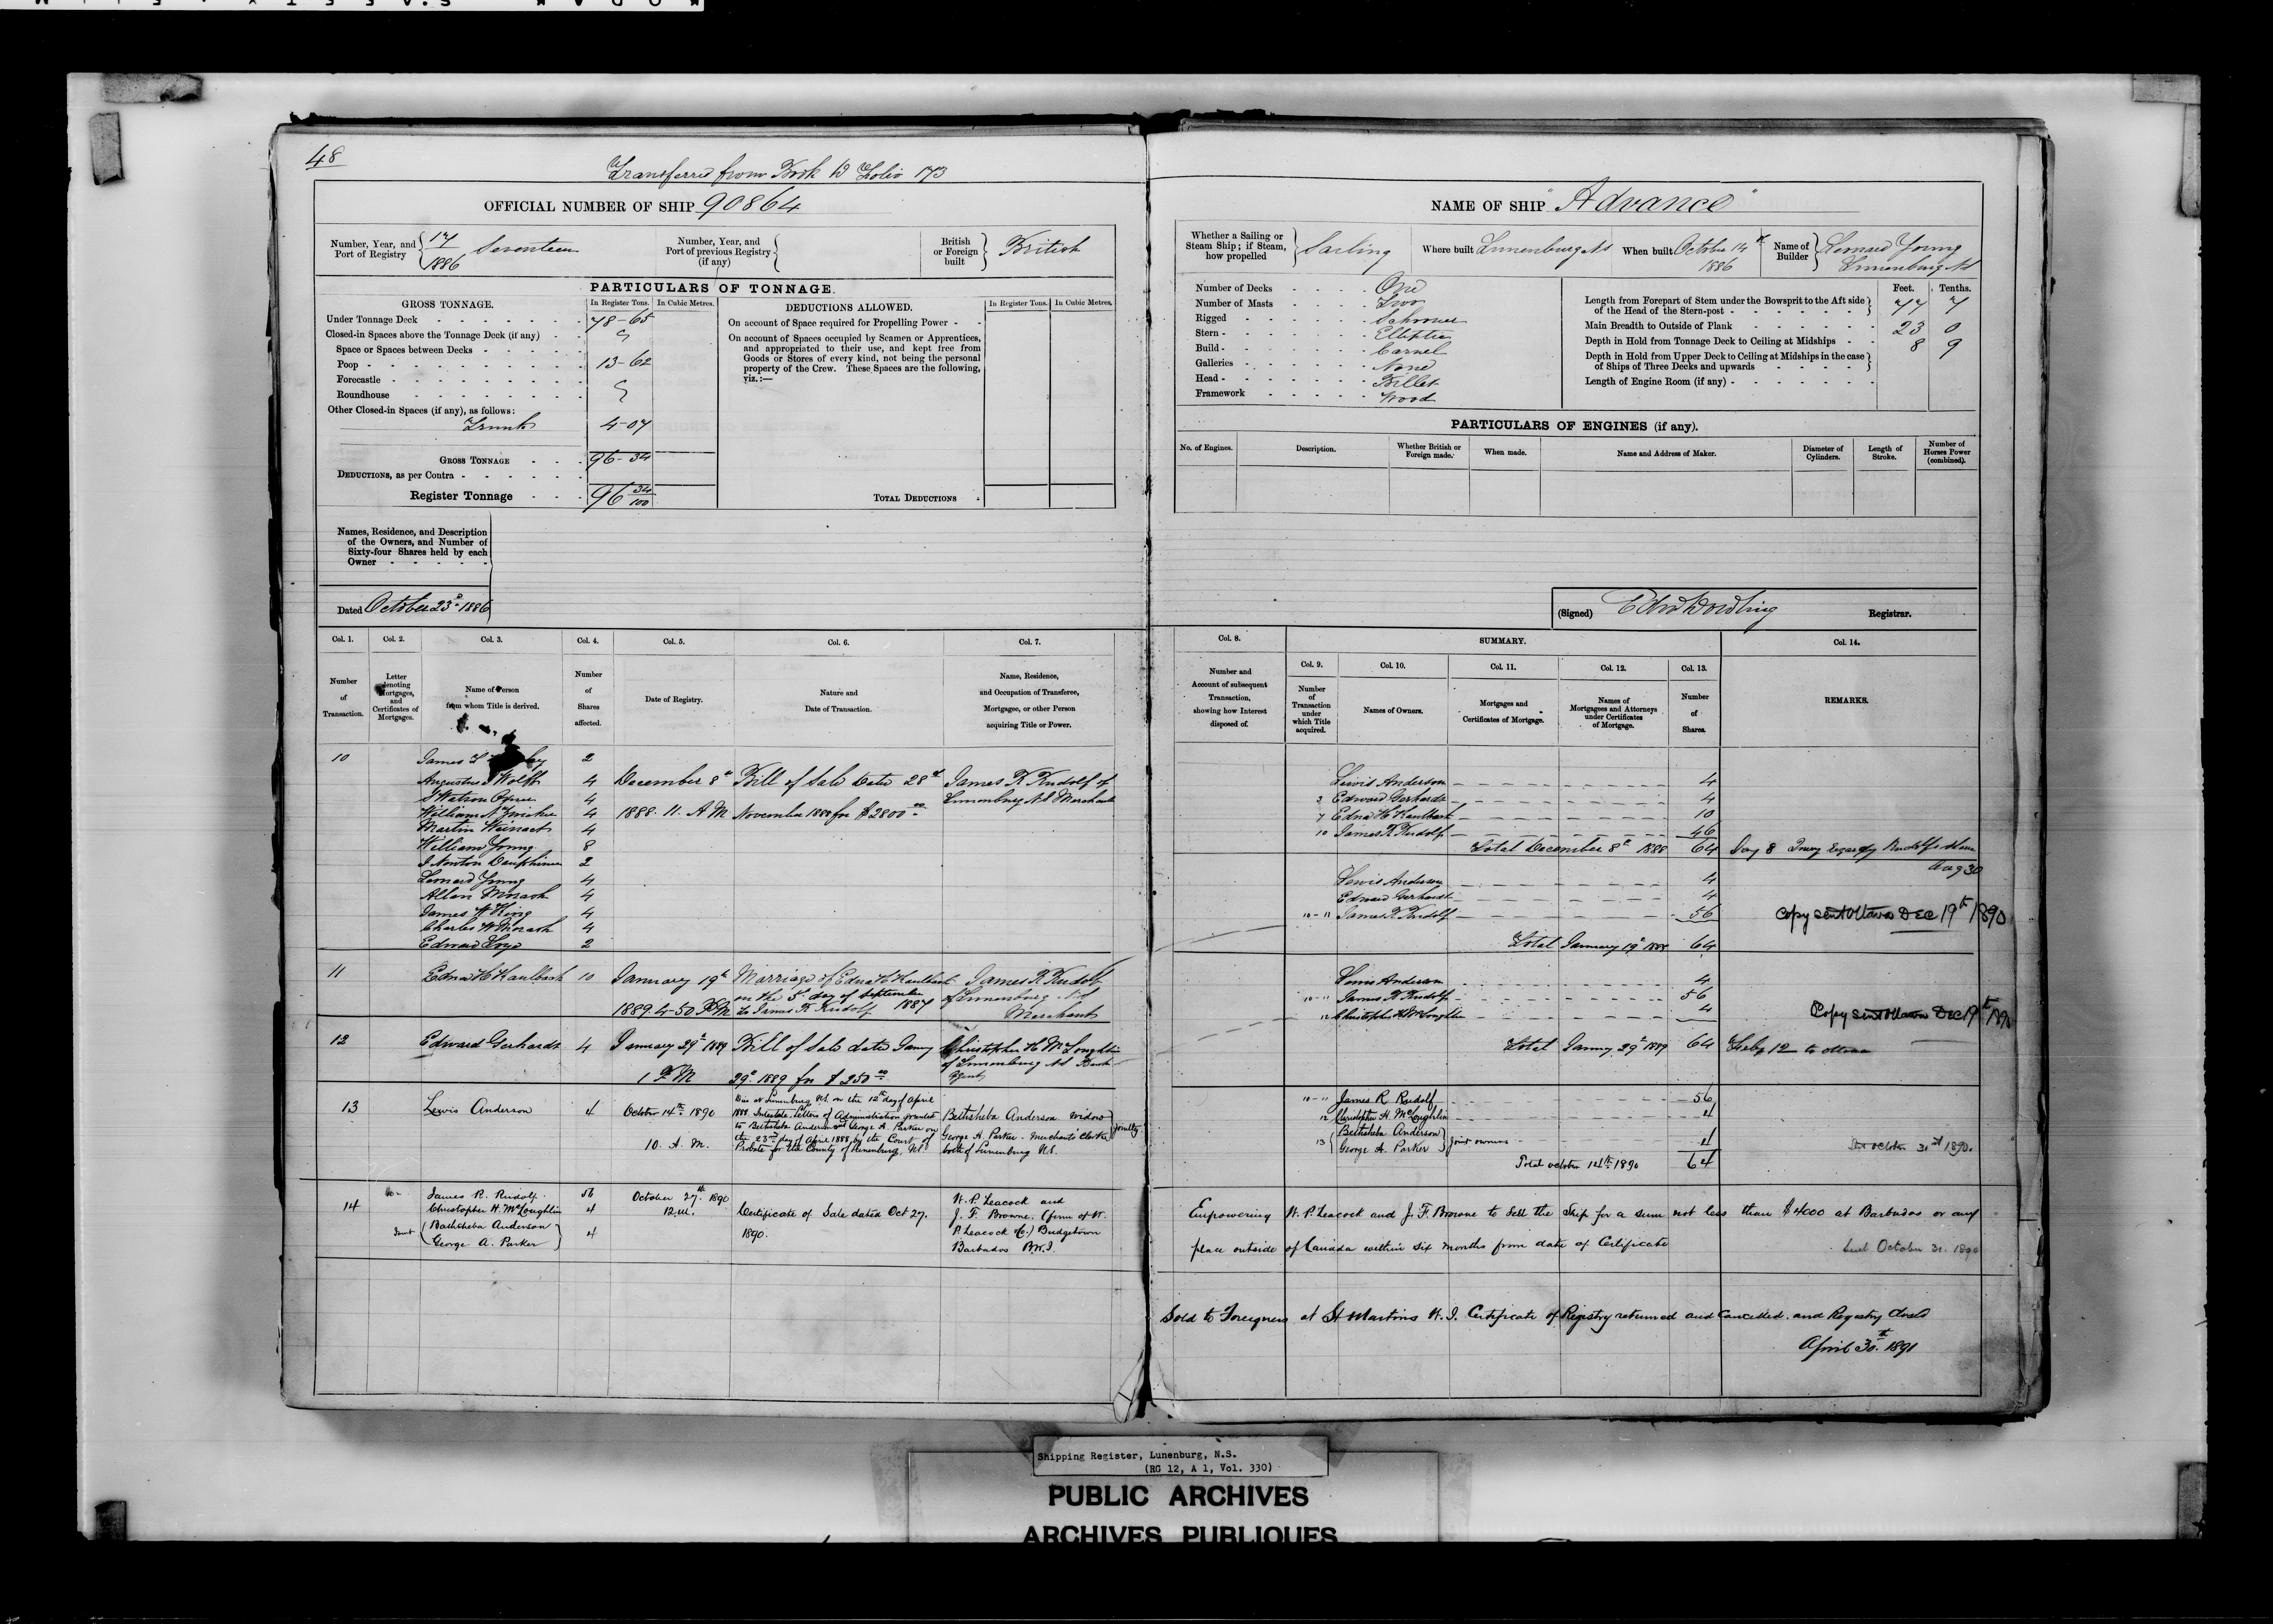 48
Transferred from Book D Folio 173
OFFICIAL NUMBER OF SHIP 90864
Number, Year, and Port of Registry 17/1886 Seventeen
Number, Year, and Port of previous Registry (if any)
British or Foreign built British
PARTICULARS OF TONNAGE.
GROSS TONNAGE. In Register Tons. In Cubic Metres.
Under Tonnage Deck 78-65
Closed-in Spaces above the Tonnage Deck (if any)
Space or Spaces between Decks
Poop 13-62
Forecastle
Roundhouse
Other Closed-in Spaces (if any), as follows:
Trunk 4-07
GROSS TONNAGE 96-34
DEDUCTIONS, as per Contra
Register Tonnage 96 34/100
DEDUCTIONS ALLOWED. In Register Tons. In Cubic Metres.
On account of Space required for Propelling Power
On account of Spaces occupied by Seamen or Apprentices,
and appropriated to their use, and kept free from
Goods or Stores of every kind, not being the personal
property of the Crew. These Spaces are the following,
viz.:—
TOTAL DEDUCTIONS
Names, Residence, and Description
of the Owners, and Number of
Sixty-four Shares held by each
Owner
Dated October 23d 1886
Col. 1. Col. 2. Col. 3. Col. 4. Col. 5. Col. 6. Col. 7.
Number of Transaction.
Letter denoting Mortgages, and Certificates of Mortgages.
Name of Person from whom Title is derived.
Number of Shares affected.
Date of Registry.
Nature and Date of Transaction.
Name, Residence, and Occupation of Transferee, Mortgagee, or other Person acquiring Title or Power.
10 James 2
Augustus J Wolff 4 December 8th Bill of Sale Date 28th James R Rudolf of
S Watson Oxner 4 Lunenburg NS Merchant
William N Zwicker 4 1888. 11. A M November 1888 for $2800.00
Martin Weinacht 4
William Young 8
J Newton Dauphinee 2
Leonard Young 4
Allan Morash 4
James W King 4
Charles W Morash 4
Edward 2
11 Edna H Kaulback 10 January 19th Marriage of Edna H Kaulback James R Rudolf
on the 5th day of September of Lunenburg NS
1889. 4-50 PM to James R Rudolf 1887 Merchant
12 Edward Gerhardt 4 January 29th 1889 Bill of Sale date Jany Christopher H McLoughlin
of Lunenburg NS Bank
1 P M 29th 1889 for $250.00 Agent
13 Lewis Anderson 4 October 14th 1890
10. A. M.
Died at Lunenburg NS. on the 12th day of April
1888 Intestate. Letters of Administration granted
to Bethsheba Anderson and George A. Parker on
the 23rd day of April 1888, by the Court of
Probate for the County of Lunenburg, NS.
Bethsheba Anderson widow
George A. Parker. Merchants Clerk
both of Lunenburg NS.
jointly
14 James R. Rudolf. 56 October 27th 1890
Christopher H. McLoughlin 4 12. m.
Joint Bathsheba Anderson
George A. Parker 4
Certificate of Sale dated Oct 27.
1890.
W. P. Leacock and
J. F. Browne, (firm of W.
P. Leacock & Co.) Bridgetown
Barbados B.W.I.
NAME OF SHIP "Advance"
Whether a Sailing or Steam Ship; if Steam, how propelled Sailing
Where built Lunenburg NS
When built October 14th 1886
Name of Builder Leonard Young Lunenburg NS
Number of Decks One
Number of Masts Two
Rigged Schooner
Stern Elliptic
Build Carvel
Galleries None
Head Billet
Framework Wood
Feet. Tenths.
Length from Forepart of Stem under the Bowsprit to the Aft side of the Head of the Stern-post 77 7
Main Breadth to Outside of Plank 23 0
Depth in Hold from Tonnage Deck to Ceiling at Midships 8 9
Depth in Hold from Upper Deck to Ceiling at Midships in the case of Ships of Three Decks and upwards
Length of Engine Room (if any)
PARTICULARS OF ENGINES (if any).
No. of Engines. Description. Whether British or Foreign made. When made. Name and Address of Maker. Diameter of Cylinders. Length of Stroke. Number of Horses Power (combined).
(Signed) Edw Dowling Registrar.
Col. 8. SUMMARY. Col. 14.
Col. 9. Col. 10. Col. 11. Col. 12. Col. 13.
Number and Account of subsequent Transaction, showing how Interest disposed of.
Number of Transaction under which Title acquired.
Names of Owners.
Mortgages and Certificates of Mortgage.
Names of Mortgagees and Attorneys under Certificates of Mortgage.
Number of Shares.
REMARKS.
Lewis Anderson 4
3 Edward Gerhardt 4
7 Edna H Kaulback 10
10 James R Rudolf 46
Total December 8th 1888 64
Aug 30
Lewis Anderson 4
Edward Gerhardt 4
10-11 James R Rudolf 56
Copy sent Ottawa Dec 19th 1890
Total January 19th 1889 64
Lewis Anderson 4
10-11 James R Rudolf 56
12 Christopher H McLoughlin 4
Copy sent Ottawa Dec 19th 1890
Total Jany 29th 1889 64 Feby 12 to Ottawa
10-11 James R Rudolf 56
12 Christopher H. McLoughlin 4
13 Bethsheba Anderson
George A. Parker Joint owners 4
Sent October 31st 1890.
Total October 14th 1890 64
Empowering W. P. Leacock and J. F. Browne to Sell the Ship for a sum not less than $4000 at Barbados or any
place outside of Canada within six months from date of Certificate
Sent October 31. 1890
Sold to Foreigners at St Martins W. I. Certificate of Registry returned and cancelled. and Registry closed
April 30th 1891
Shipping Register, Lunenburg, N.S.
(RG 12, A 1, Vol. 330)
PUBLIC ARCHIVES
ARCHIVES PUBLIQUES